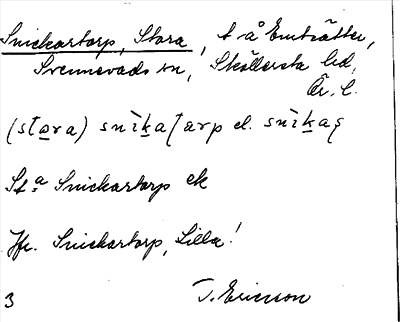 Snickartorp, Stora, t å Emtsätter,
Svennevads sn, Sköllersta hd,
Ör. l.
(stạra) snìḵaʈarp el. snìḵaʂ
St:a Snickartorp ek
Jfr. Snickartorp, Lilla!
3 T. Ericsson